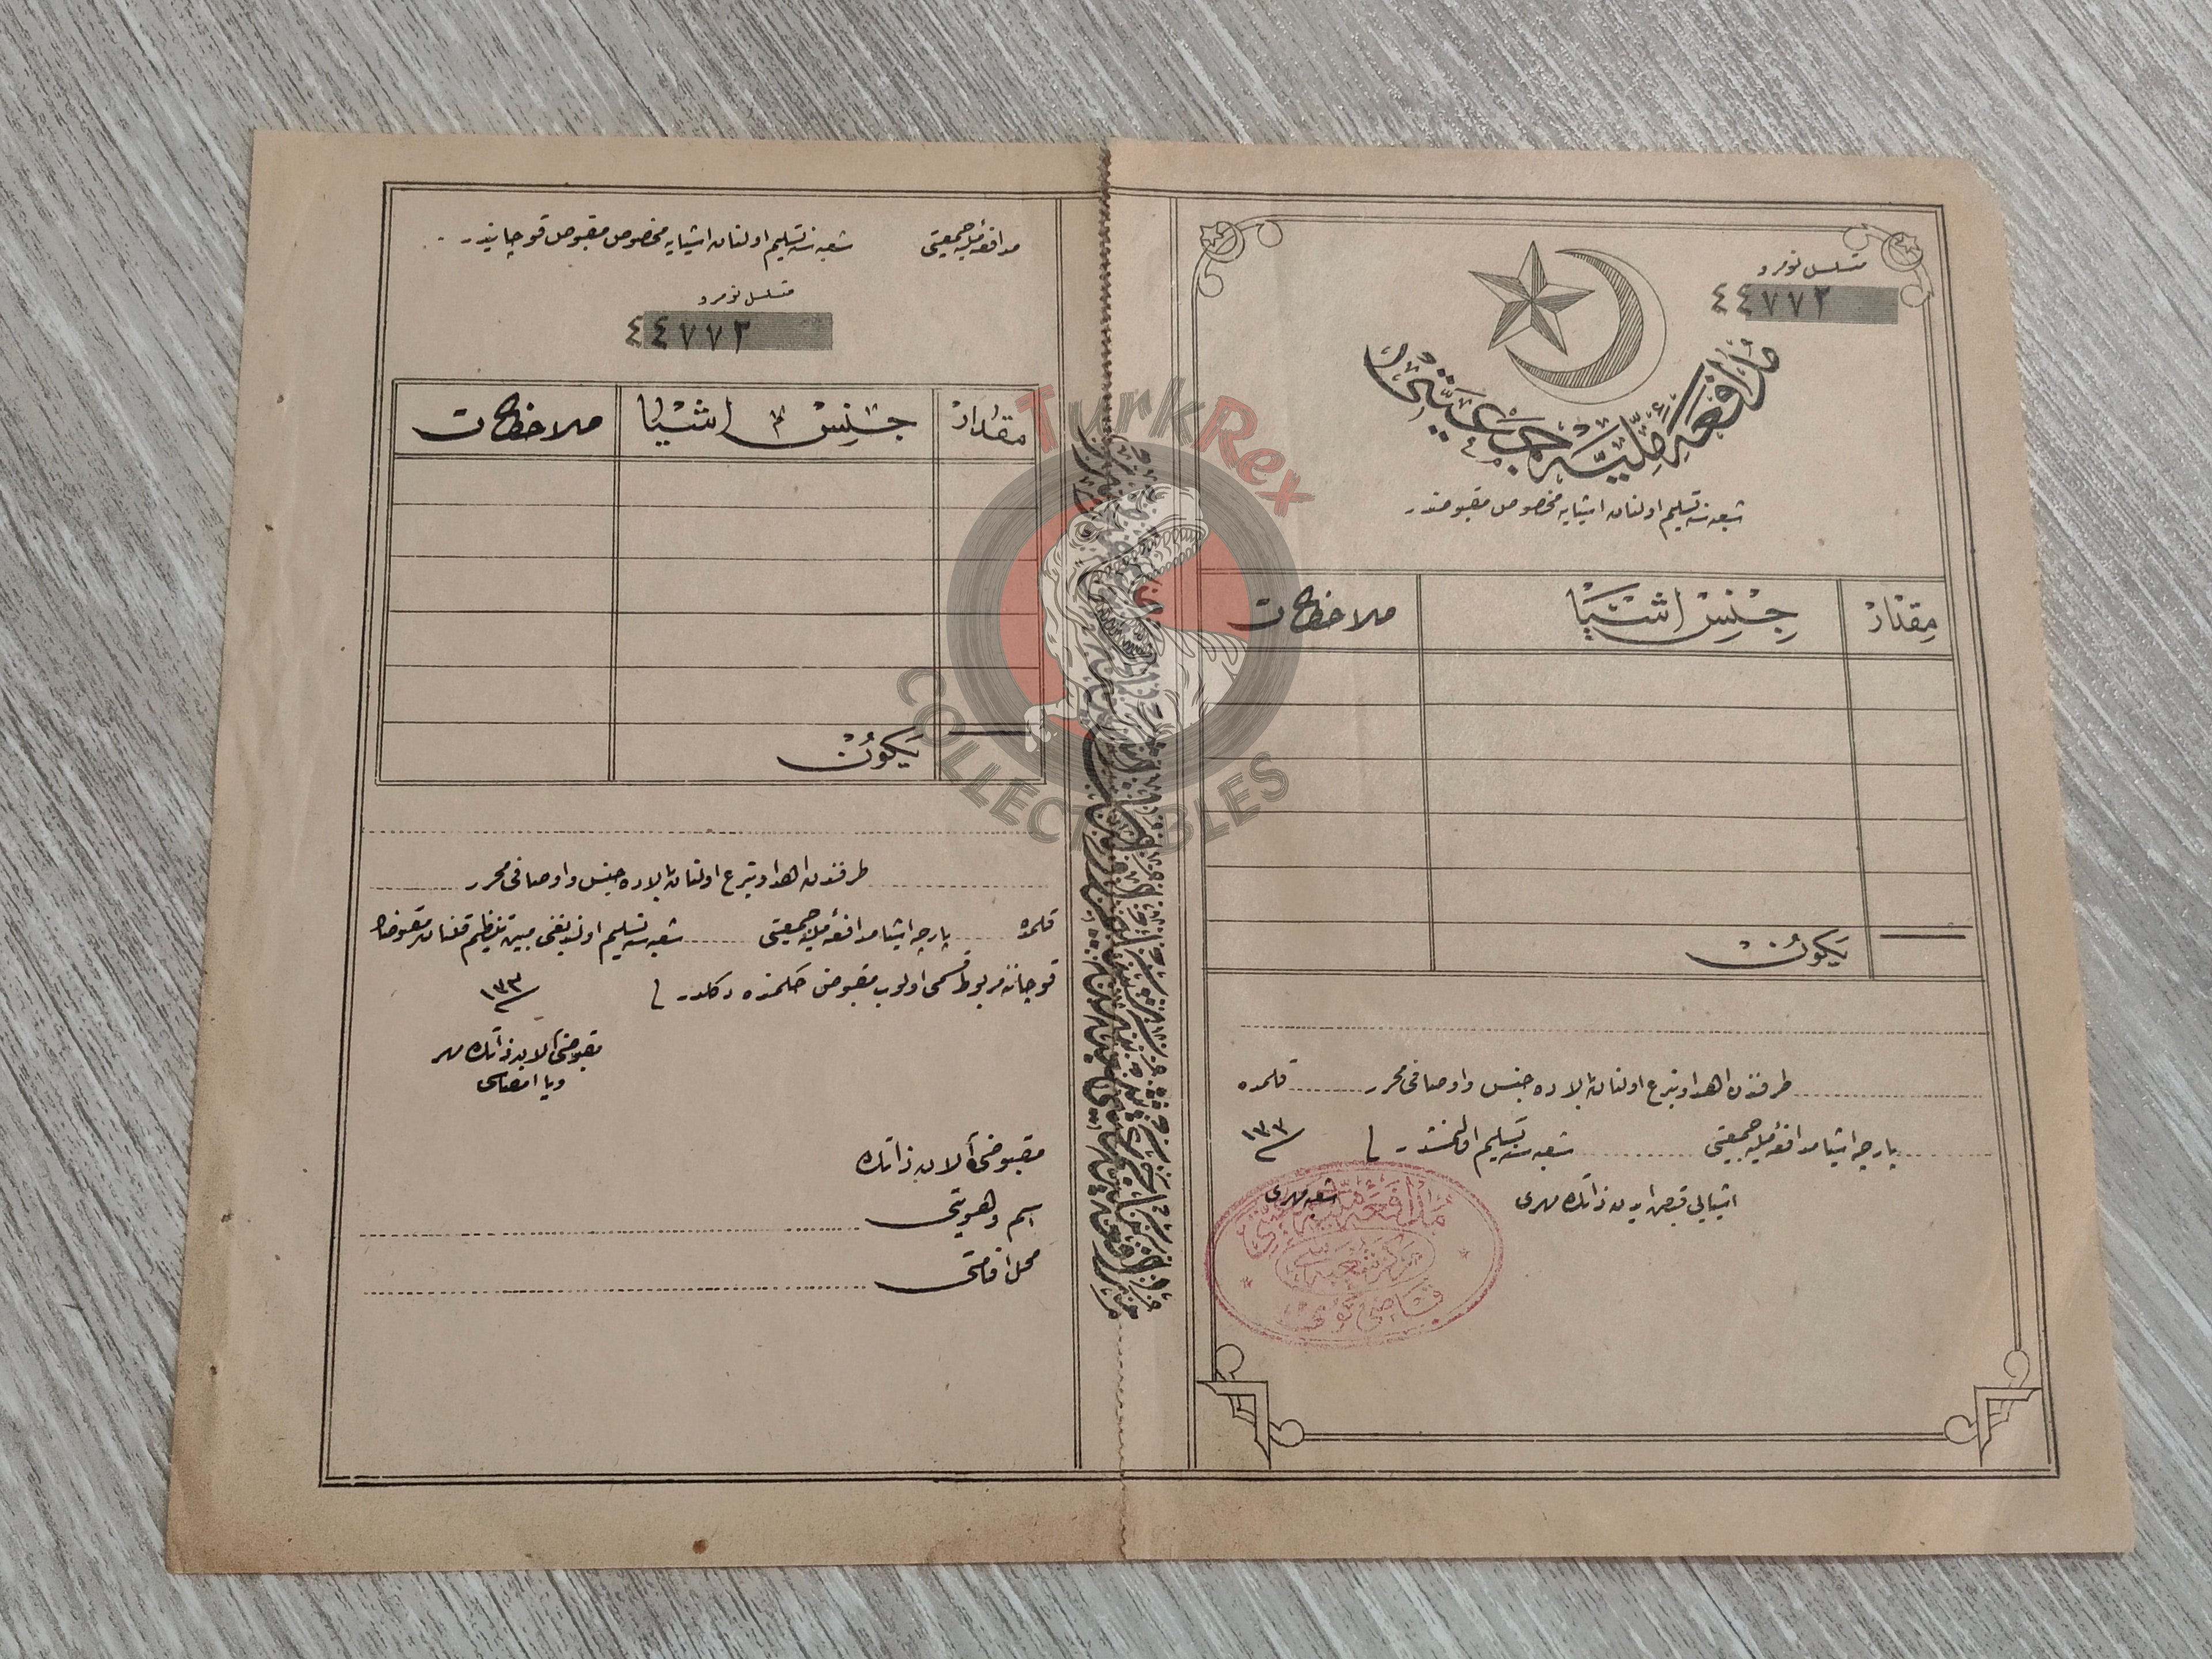 متسلسل نومرو
٤٤٧٧٢
مدافعهٔ ملیه جمعیتی
شعبه‌سنه تسلیم اولنان اشیایه مخصوص مقبوضدر
مقدار
جنس اشیا
ملاحظات
یكون
طرفندن اهدا و تبرع اولنان بالاده جنس و اوصافی محرر
قلمده
پارچه اشیا مدافعهٔ ملیه جمعیتی
شعبه‌سنه تسیلم اولنمشدر
١٣٣
اشیایی قبض ایدن ذاتك مهری
شعبه مهری
مدافعهٔ ملیه جمعیتی
مركز شعبه‌سی
قاضی كوی
مدافعهٔ ملیه جمعیتی
شعبه‌سنه تسلیم اولنان اشیایه مخصوص مقبوض قوچانیدر
متسلسل نومرو
٤٤٧٧٢
مقدار
جنس اشیا
ملاحظات
یكون
طرفندن اهدا و تبرع اولنان بالاده جنس و اوصافی محرر
قلمده
پارچه اشیا مدافعهٔ ملیه جمعیتی
شعبه‌سنه تسلیم اولندیغنی مبین تنظیم قلنان مقبوضك
قوچاننه مربوط قسمی اولوب مقبوض حكمنده دكلدر
١٣٣
مقبوضی آلان ذاتك مهر
ویا امضاسی
مقبوضی آلان ذاتك
اسم و هویتی
محل اقامتی
TurkRex
COLLECTIBLES